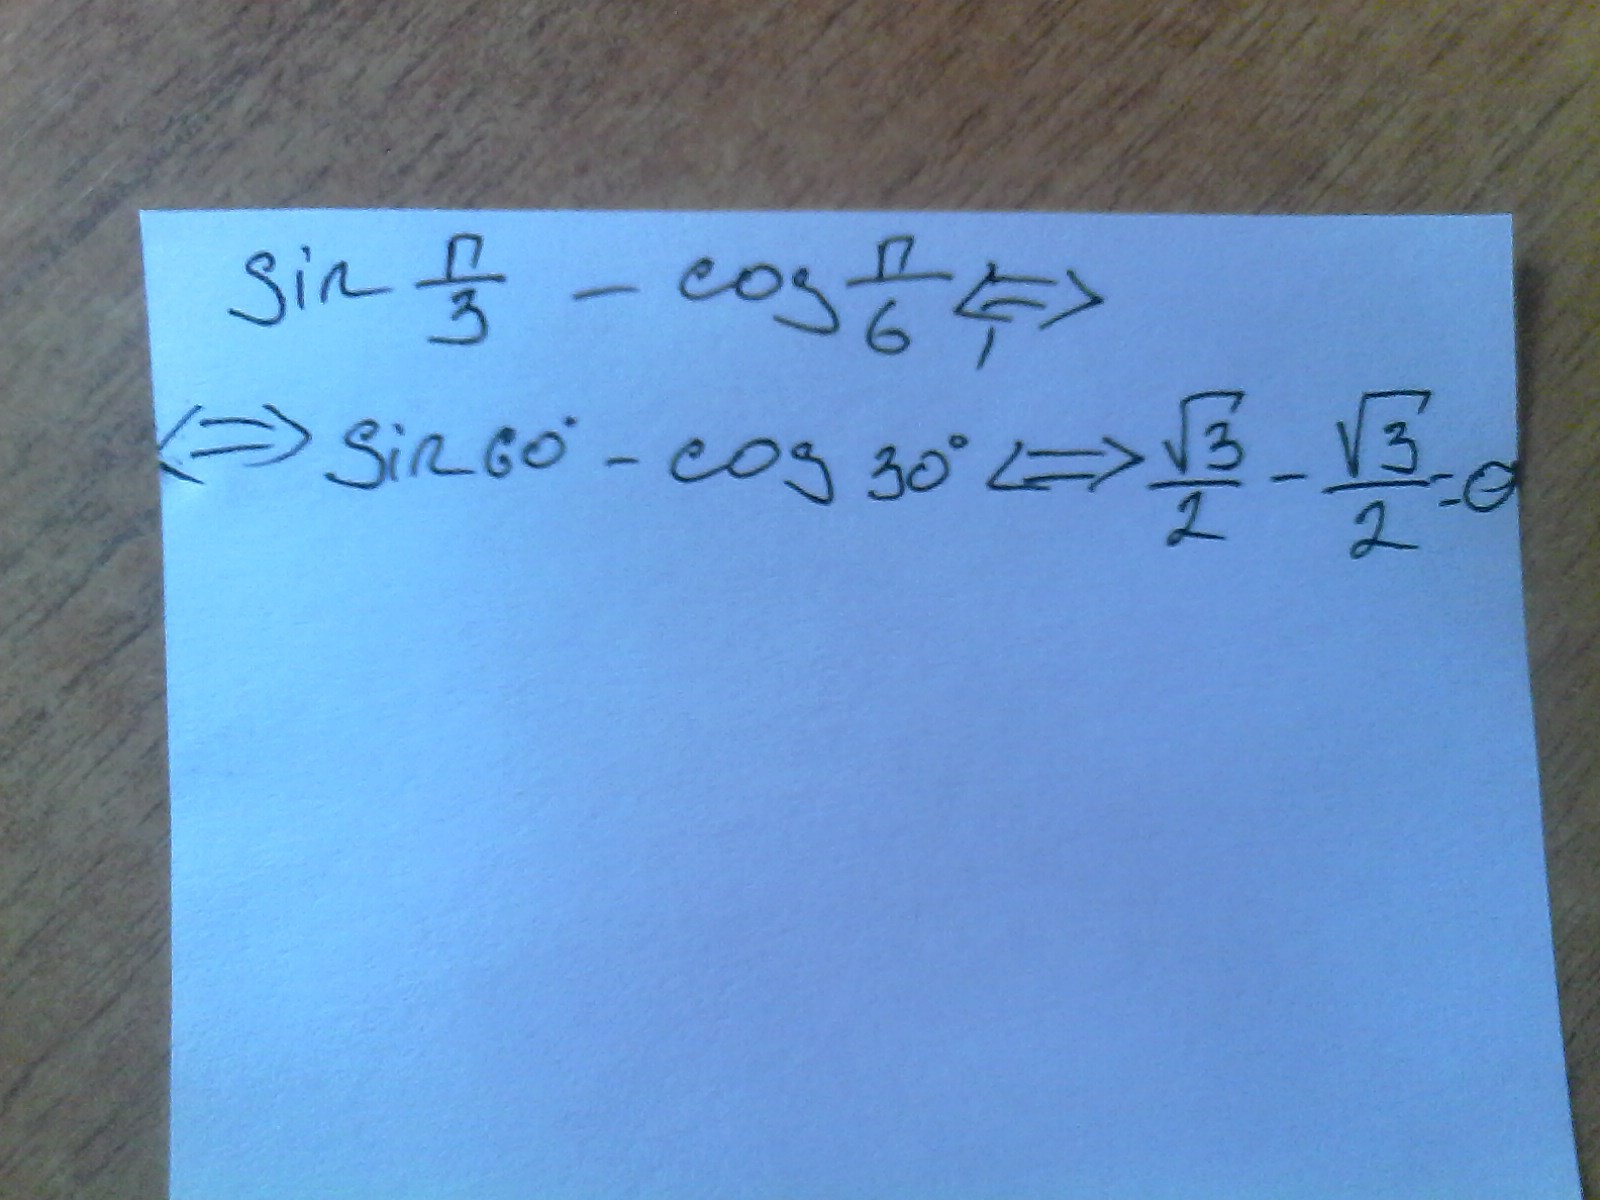 sin π/3 - cos π/6 <=>
<=> sin 60° - cos 30° <=> √3/2 - √3/2 = 0